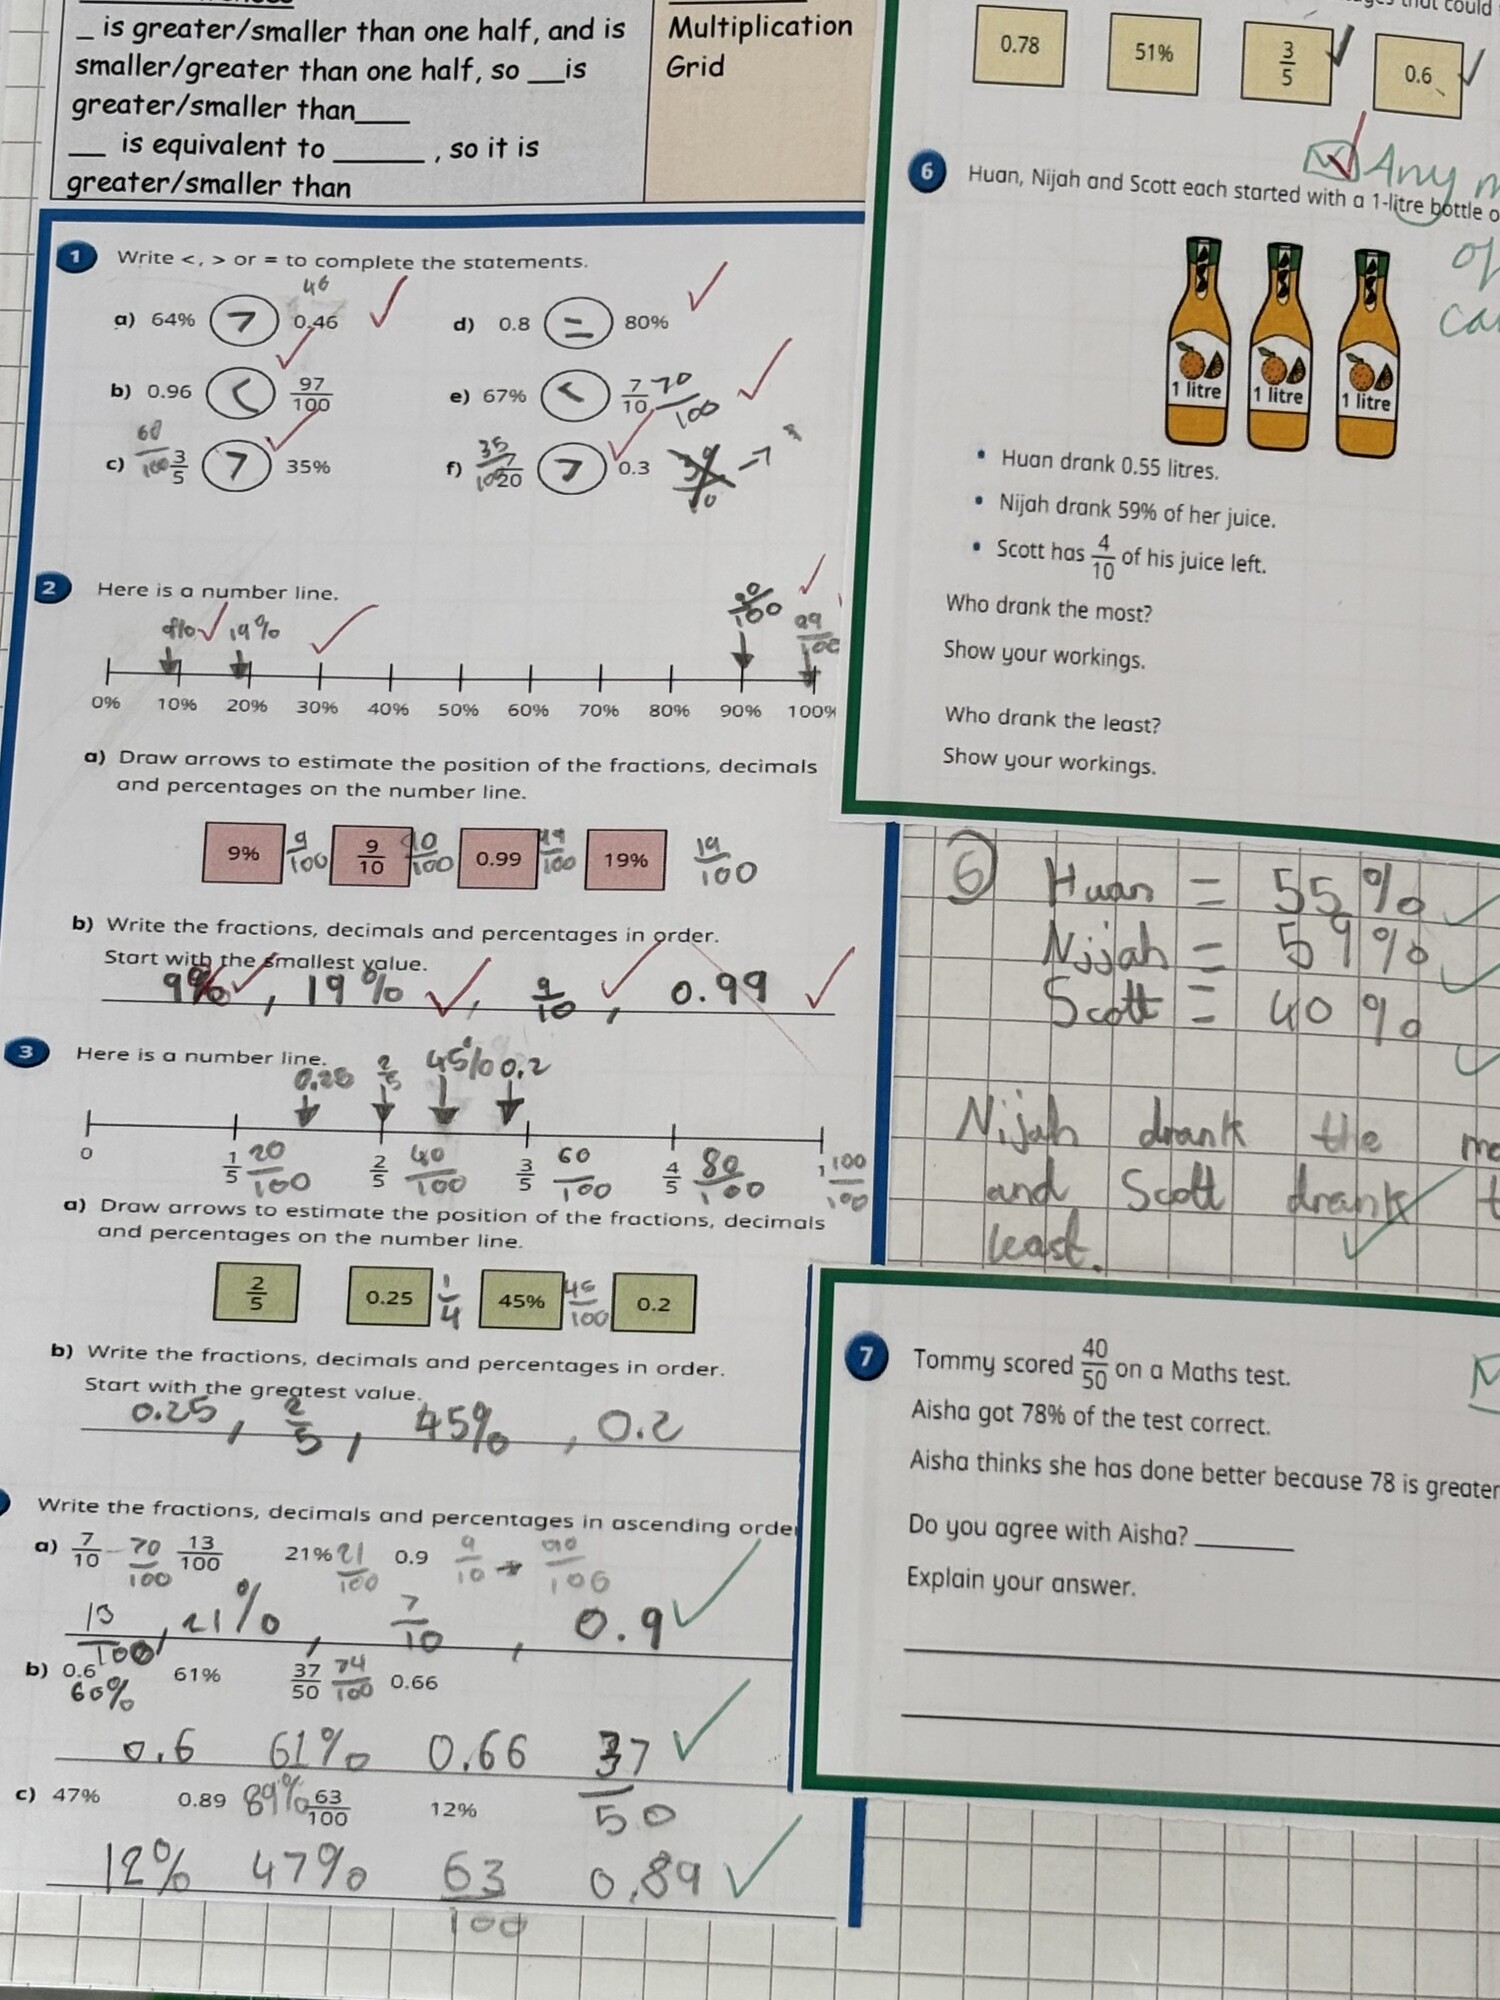 _ is greater/smaller than one half, and is
smaller/greater than one half, so __is
greater/smaller than____
__ is equivalent to _____ , so it is
greater/smaller than
Multiplication
Grid
1 Write <, > or = to complete the statements.
46
a) 64% > 0.46
d) 0.8 = 80%
b) 0.96 < 97/100
e) 67% < 7/10 70/100
c) 60/100 3/5 > 35%
f) 35/100 7/20 > 0.3
2 Here is a number line.
9% 19% 90/100 99/100
0% 10% 20% 30% 40% 50% 60% 70% 80% 90% 100%
a) Draw arrows to estimate the position of the fractions, decimals
and percentages on the number line.
9% 9/100 9/10 90/100 0.99 99/100 19% 19/100
b) Write the fractions, decimals and percentages in order.
Start with the smallest value.
9% , 19% , 9/10 , 0.99
3 Here is a number line.
0.25 2/5 45% 0.2
0 1/5 20/100 2/5 40/100 3/5 60/100 4/5 80/100 1 100/100
a) Draw arrows to estimate the position of the fractions, decimals
and percentages on the number line.
2/5 0.25 1/4 45% 45/100 0.2
b) Write the fractions, decimals and percentages in order.
Start with the greatest value.
0.25 , 2/5 , 45% , 0.2
Write the fractions, decimals and percentages in ascending order
a) 7/10 70/100 13/100 21% 21/100 0.9 9/10 → 90/100
13/100 , 21% , 7/10 , 0.9
b) 0.6 61% 37/50 74/100 0.66
60%
0.6 61% 0.66 37/50
c) 47% 0.89 89% 63/100 12%
12% 47% 63/100 0.89
that could
0.78 51% 3/5 0.6
Any
6 Huan, Nijah and Scott each started with a 1-litre bottle o
of
1 litre 1 litre 1 litre
• Huan drank 0.55 litres.
• Nijah drank 59% of her juice.
• Scott has 4/10 of his juice left.
Who drank the most?
Show your workings.
Who drank the least?
Show your workings.
6 Huan = 55%
Nijah = 59%
Scott = 40%
Nijah drank the mo
and Scott drank t
least.
7 Tommy scored 40/50 on a Maths test.
Aisha got 78% of the test correct.
Aisha thinks she has done better because 78 is greater
Do you agree with Aisha? ______
Explain your answer.